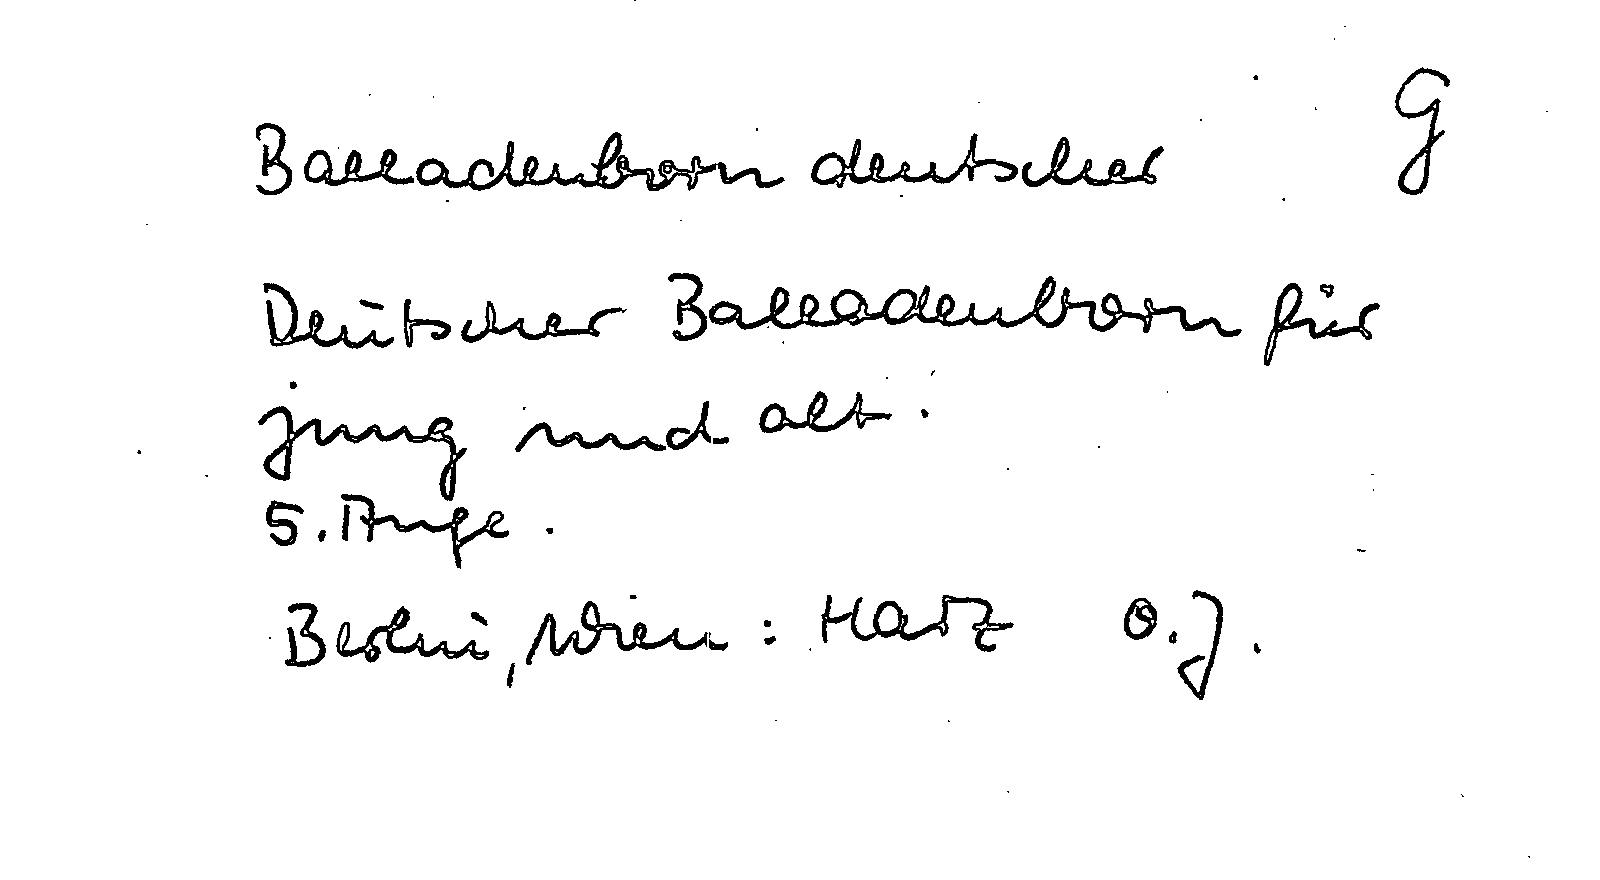 Balladenborn deutscher G
Deutscher Balladenborn für
jung und alt.
5. Aufl.
Berlin, Wien: Harz o.J.